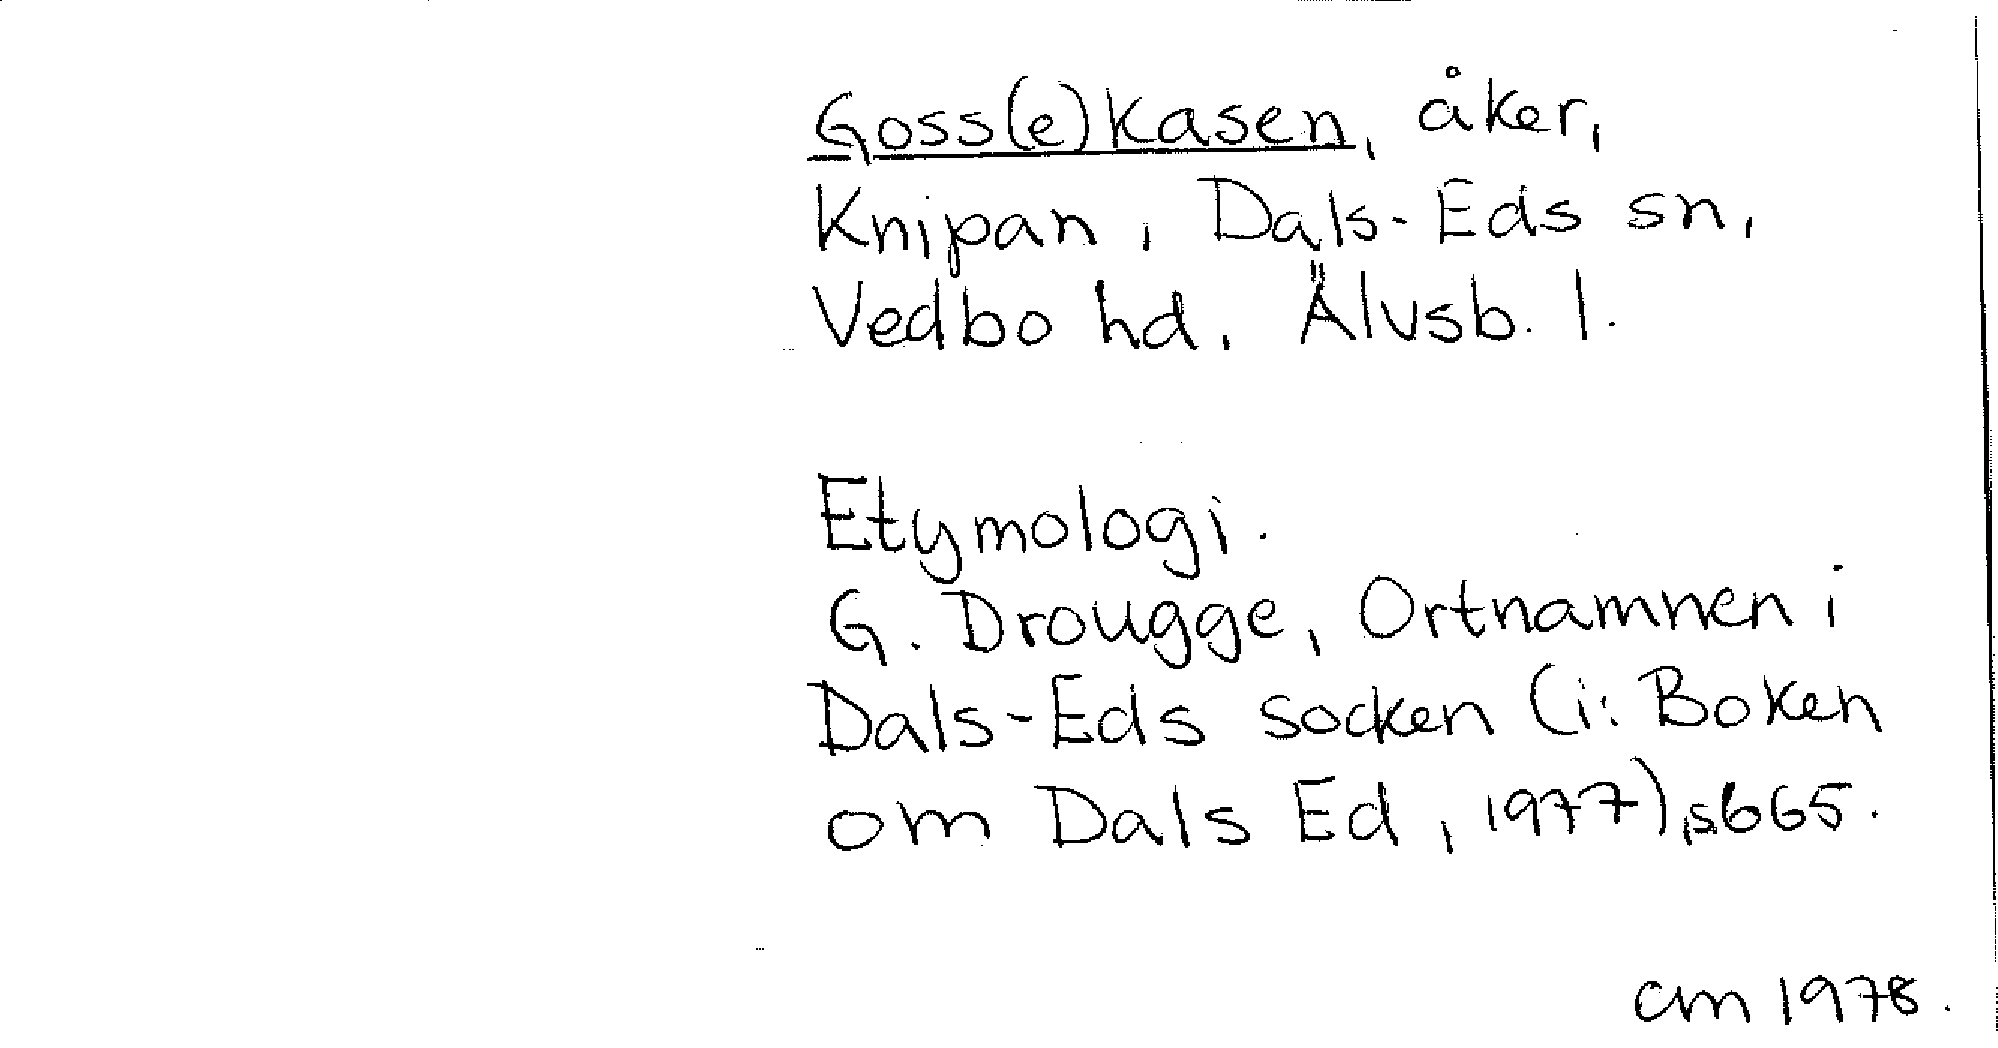 Goss(e)kasen, åker,
Knipan, Dals-Eds sn,
Vedbo hd, Älvsb. l.
Etymologi.
G. Drougge, Ortnamnen i
Dals-Eds socken (i: Boken
om Dals Ed, 1977), s 665.
cm 1978.